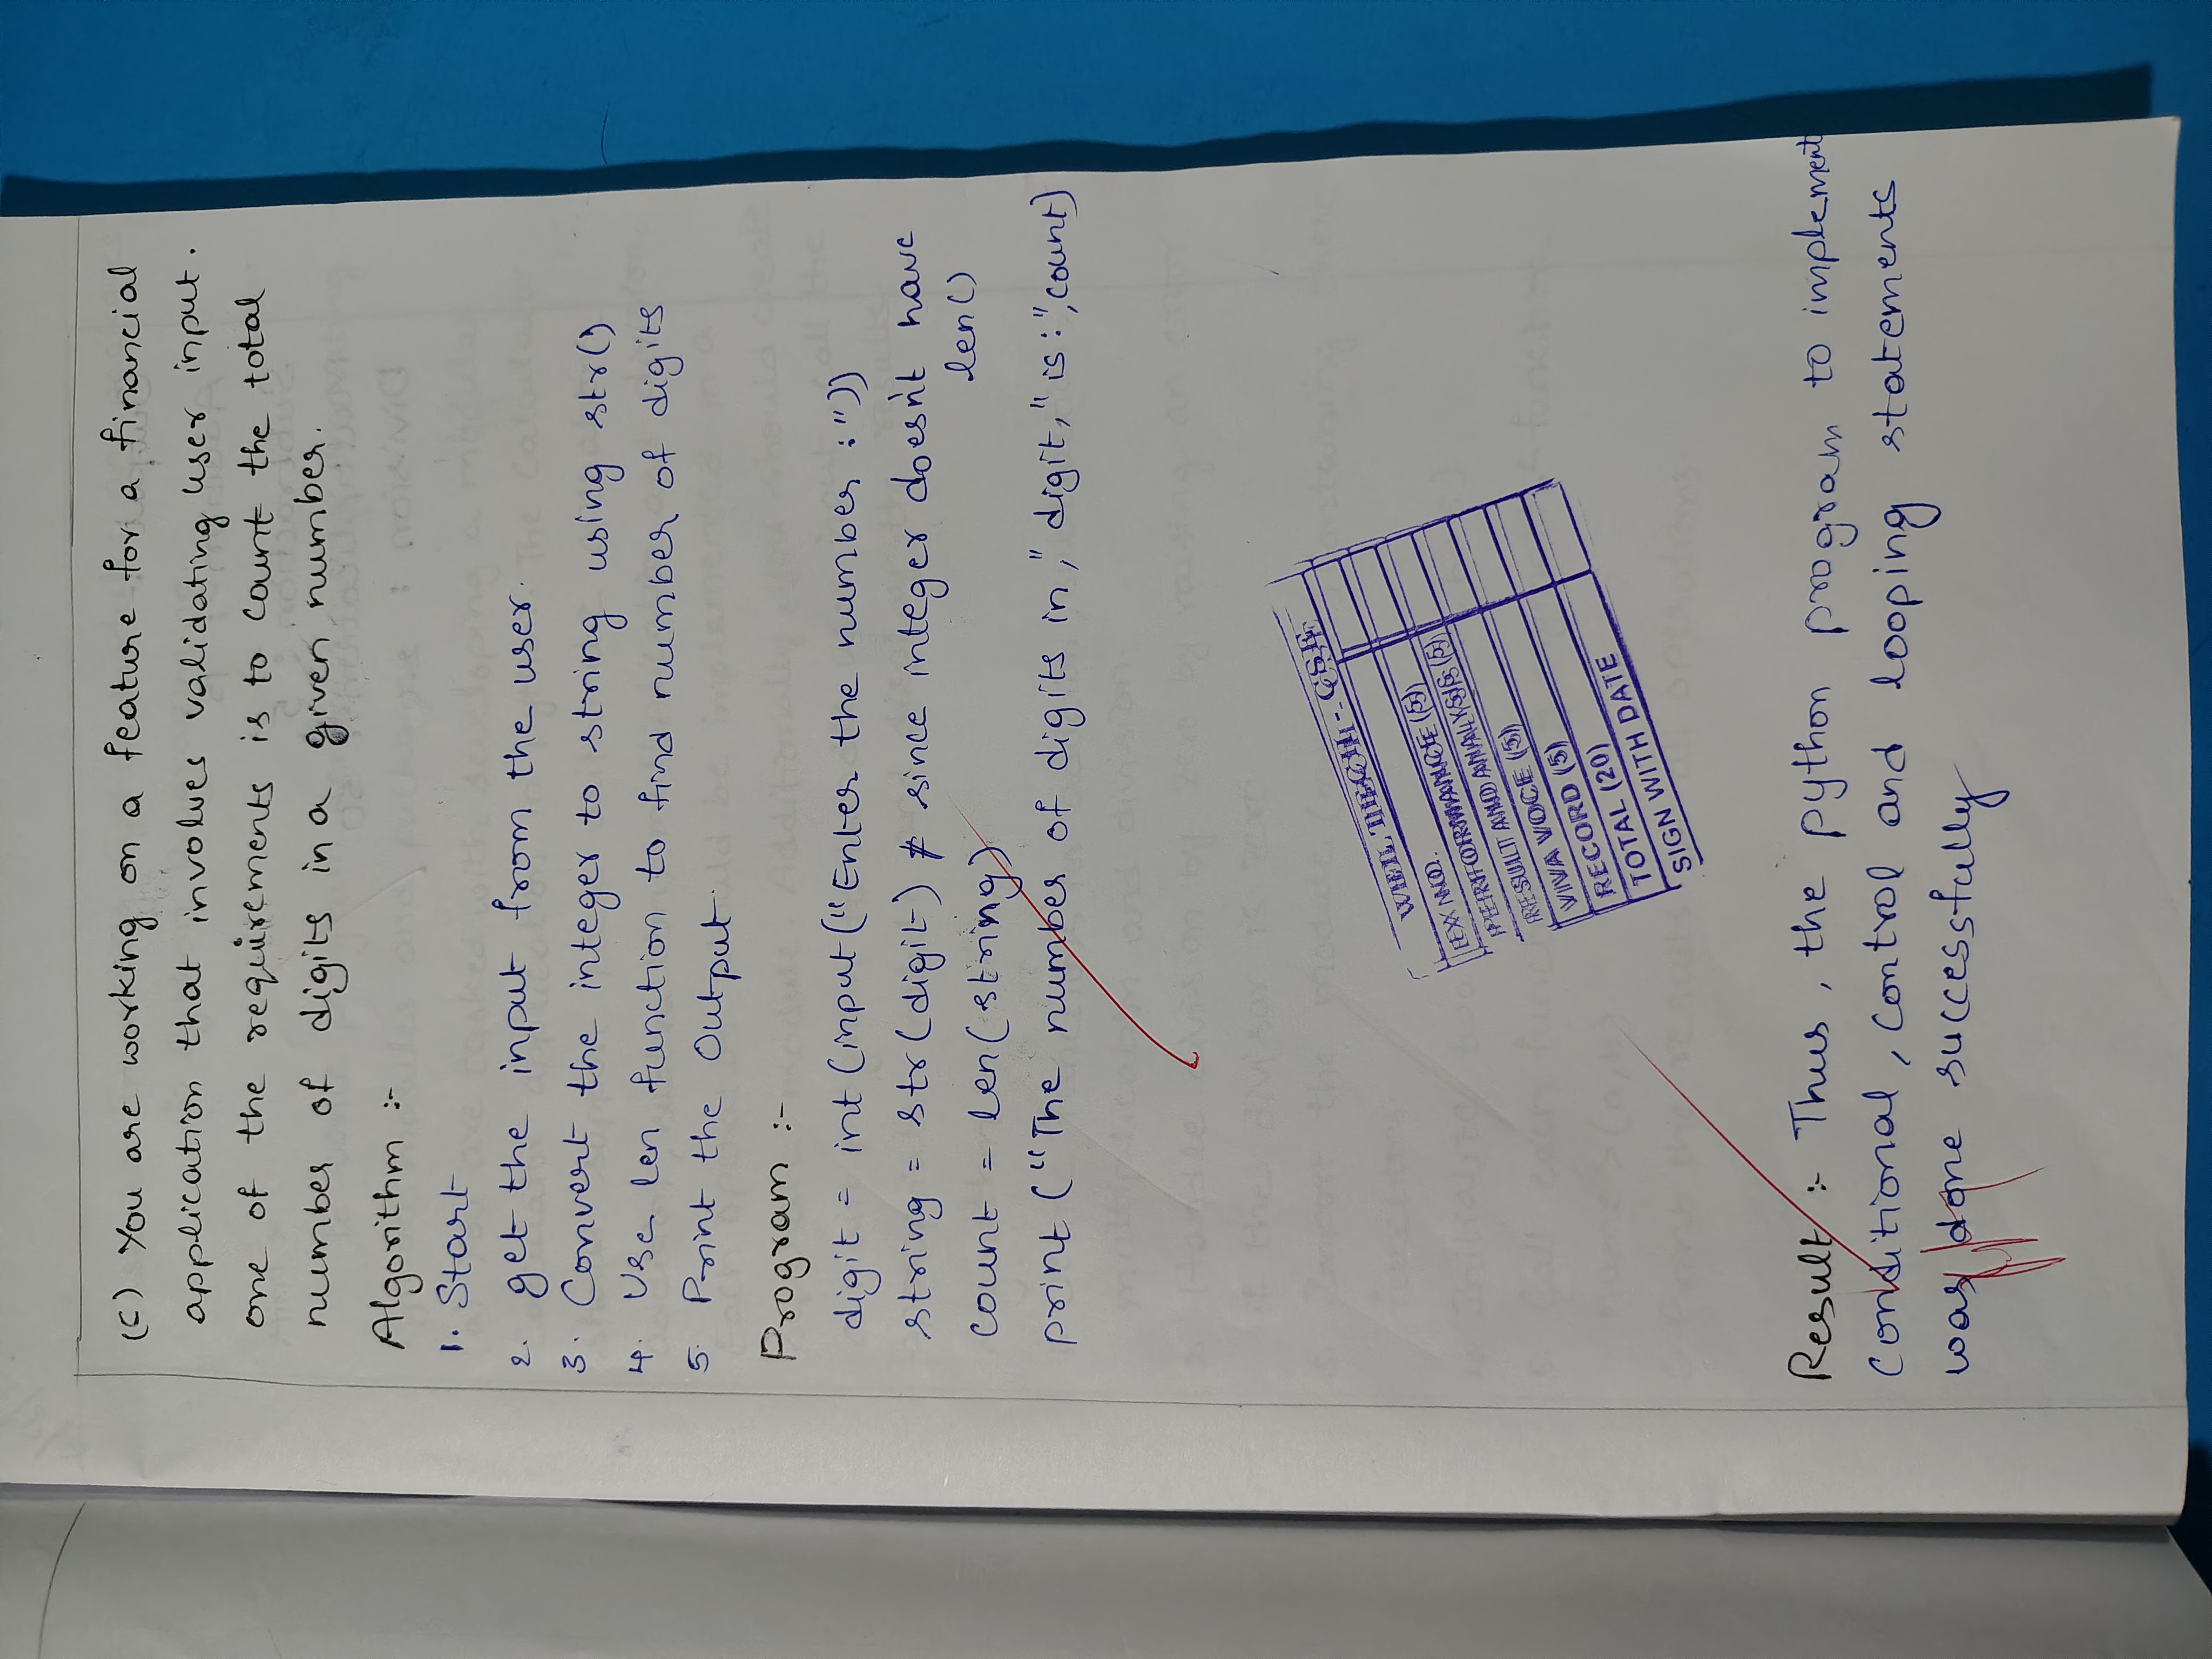 (C) You are working on a feature for a financial
application that involves validating user input.
one of the requirements is to count the total
number of digits in a given number.
Algorithm :-
1. Start
2. get the input from the user.
3. Convert the integer to string using str()
4. Use len function to find number of digits
5. Print the Output.
Program :-
digit = int (input ("Enter the number :"))
string = str(digit) # since integer doesn't have
len()
count = len(string)
print ("The number of digits in," digit," is :",count)
VEL TECH - CSE
EX NO.
PERFORMANCE (5)
RESULT AND ANALYSIS (5)
VIVA VOCE (5)
RECORD (5)
TOTAL (20)
SIGN WITH DATE
Result :- Thus, the python program to implement
Conditional, control and looping statements
was done successfully